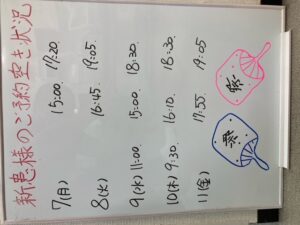 新患様のご予約空き状況
7(月) 15:00. 17:20
8(火) 16:45. 19:05.
9(水) 11:00. 15:00. 18:30.
10(木) 9:30. 16:10. 18:30.
11(金) 17:55. 19:05
祭
祭